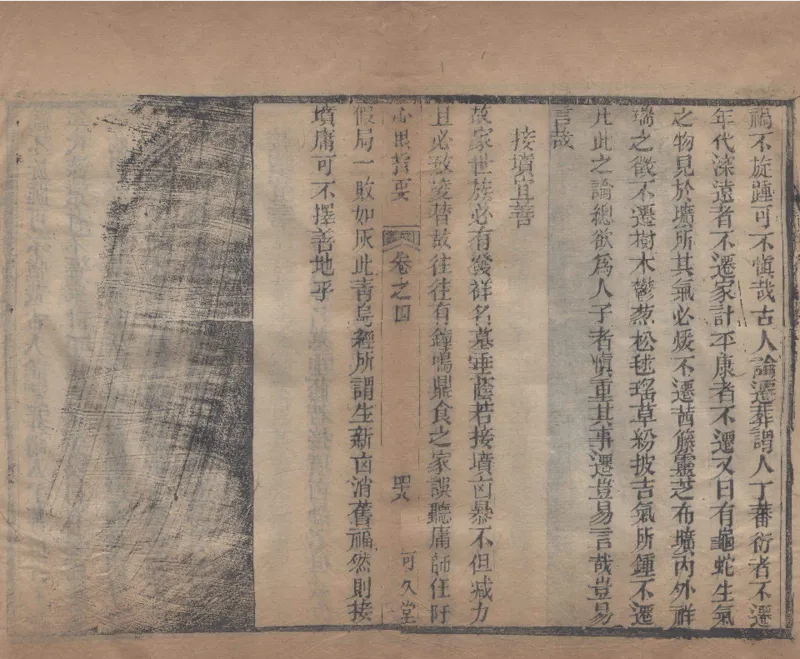 禍不旋踵可不慎哉古人論遷葬謂人丁蕃衍者不遷
年代深遠者不遷家計平康者不遷又曰有龜蛇生氣
之物見於墳所其氣必煖不遷茜籐靈芝布壙內外祥
瑞之徵不遷樹木鬱蒸松毬瑤草紛披吉氣所鍾不遷
凡此之論總欲爲人子者慎重其事遷豈易言哉豈易
言哉
接墳宜善
故家世族必有發祥名墓垂蔭若接墳凶暴不但減力
且必致凌替故往往有鐘鳴鼎食之家誤聽庸師任阡
心眼指要 卷之四 四八 可久堂
假局一敗如灰此青烏經所謂生新凶消舊福然則接
墳庸可不擇善地乎